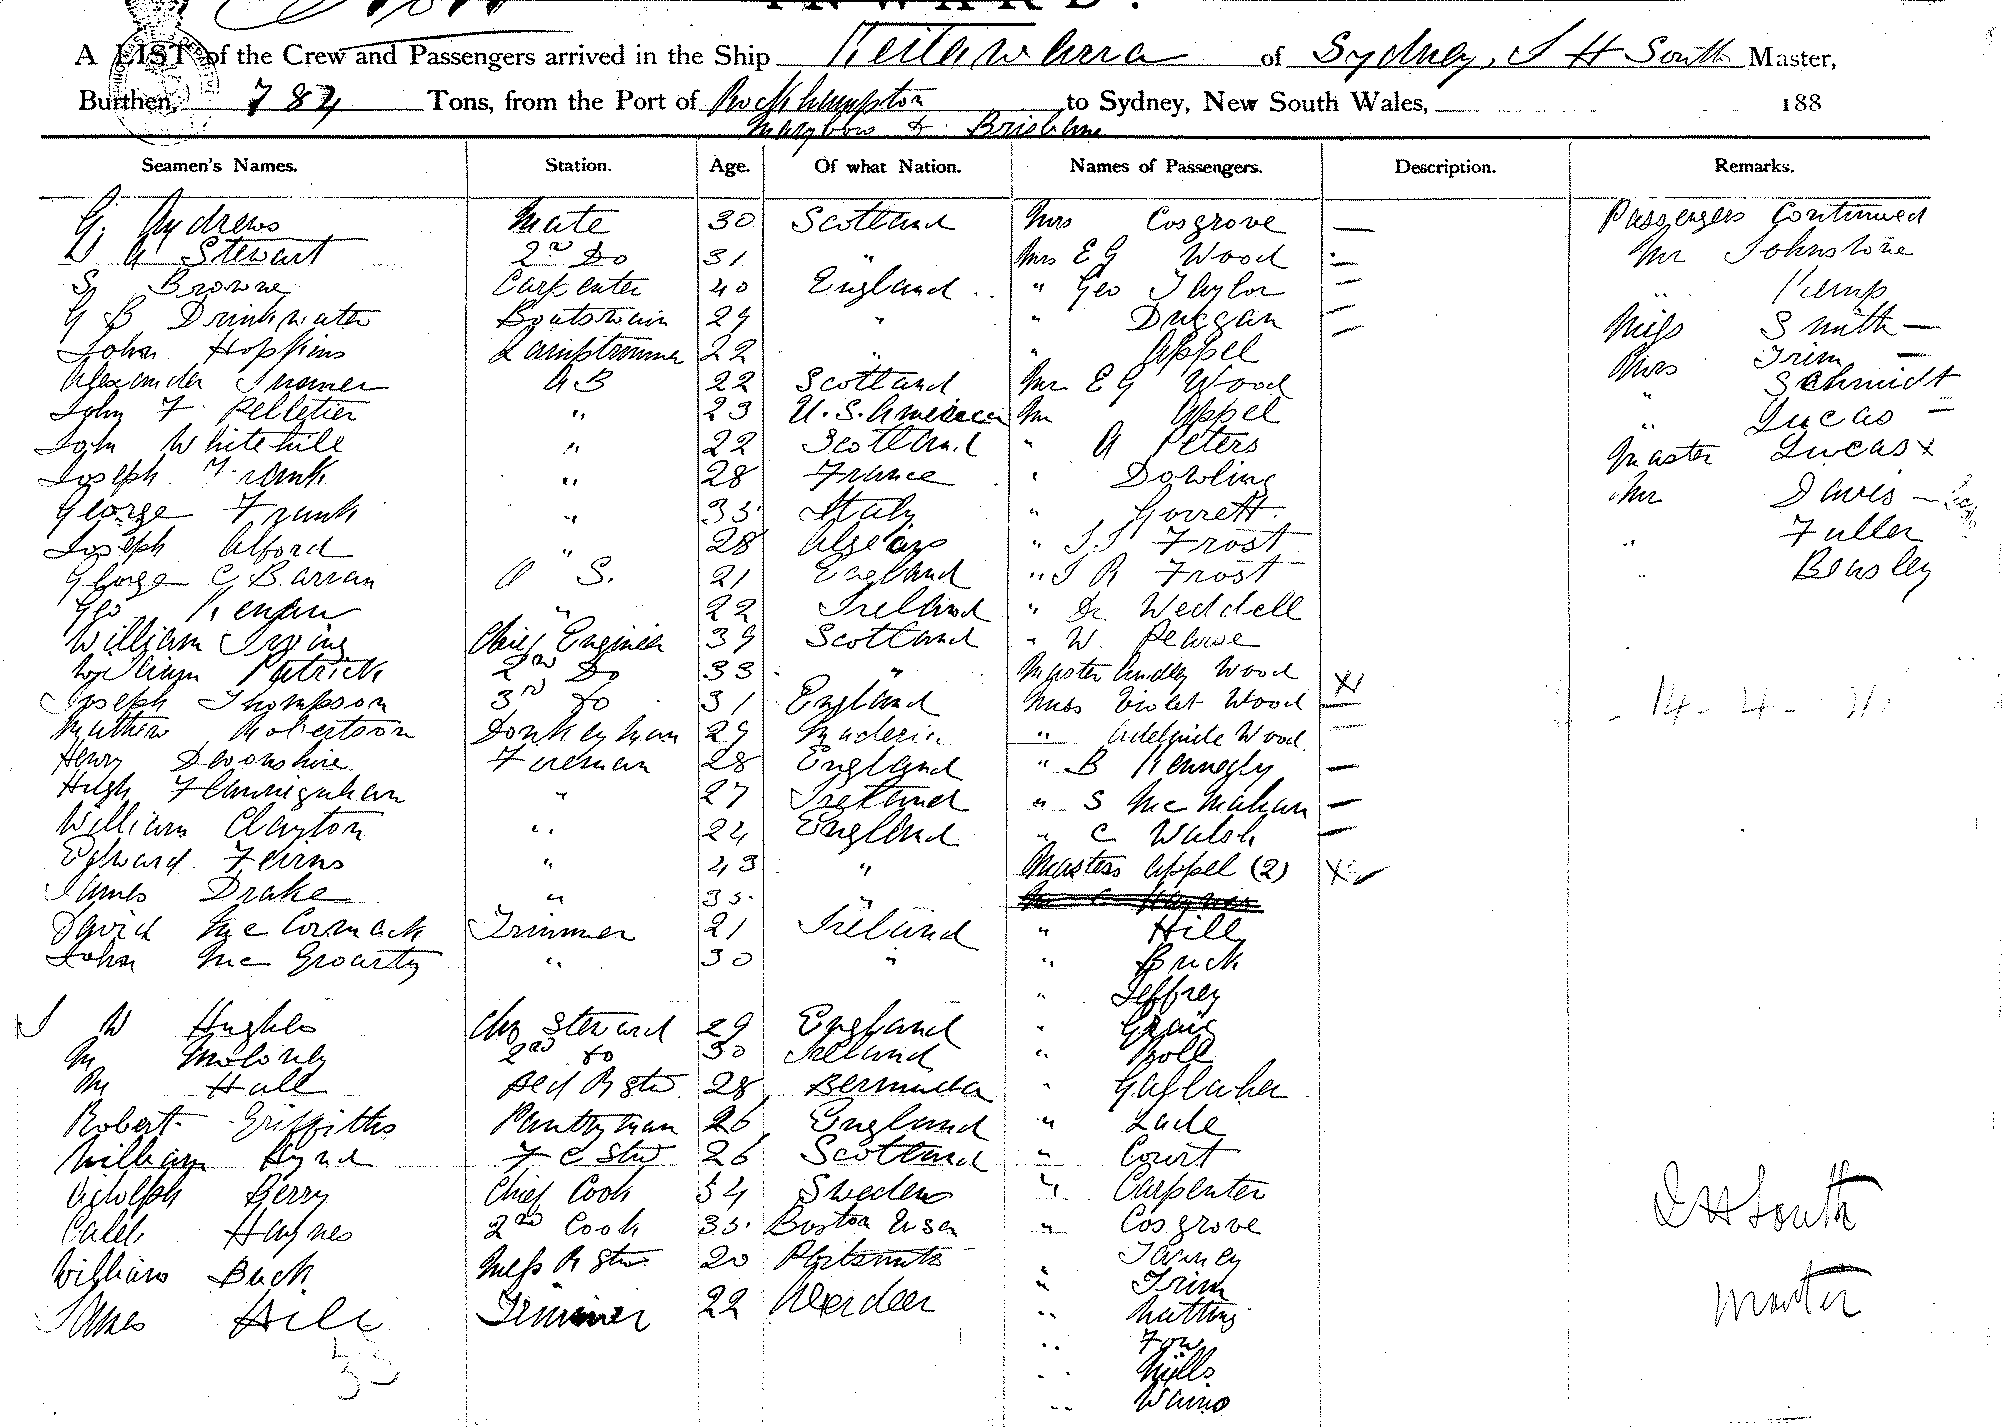 INWARD.
A LIST of the Crew and Passengers arrived in the Ship Keilawarra of Sydney, J H South Master,
Burthen, 784 Tons, from the Port of Rockhampton to Sydney, New South Wales, 188
Marybow & Brisbane
Seamen's Names. Station. Age. Of what Nation. Names of Passengers. Description. Remarks.
G. Andrews Mate 30 Scotland Mrs Cosgrove — Passengers Continued
A Stewart 2nd Do 31 " Mrs E G Wood Mr Johnstone
Browne Carpenter 40 England " Geo Taylor — " Kemp
G B Drinkwater Boatswain 29 " " Duggan — Miss Smith —
John Hopkins Lamptrimmer 22 " " Appel — Mrs Trim —
Alexander Turner A B 22 Scotland Mr E G Wood " Schmidt
John F. Pelletier " 23 U.S. America Mr Appel " Lucas —
John Whitehill " 22 Scotland " A Peters Master Lucas x
Joseph Frank " 28 France " Dowling Mr Davis —
George Frank " 35 Italy " Garrett " Fuller
Joseph Alford " 28 Algiers " J.J Frost " Beasley
George C Barran O S. 21 England " J R Frost
Geo Kenan " 22 Ireland " Dr Weddell
William Irving Chief Engineer 39 Scotland " W. Pearse
William Patrick 2nd Do 33 " Master Audley Wood X
Joseph Thompson 3rd Do 31 England Miss Violet Wood —
Mathew Robertson Donkeyman 29 Maderia " Adelaide Wood — 14-4-
Henry Devonshire Fireman 28 England " B Kennedy —
Hugh Flannighan " 27 Ireland " S McMahan —
William Clayton " 24 England " C Walsh —
Edward Fearns " 43 " Masters Appel (2) X
James Drake " 35 "
David McCormack Trimmer 21 Ireland " Hill
John McGroarty " 30 " " Buck
" Jeffrey
J W Hughes Chf Steward 29 England " Craig
M Moloney 2nd Do 30 Ireland " Boll
M Hall 28 Bermuda " Gallaher
Robert Griffiths Pantryman 26 England " Lade
William Hynd F C Stw 26 Scotland " Court
Adolph Berry Chief Cook 54 Sweden " Carpenter J H South
Caleb Haynes 2nd Cook 35 Boston Usa " Cosgrove
William Buck Mess R Stw 20 Portsmouth " Tawney
James Hill Trimmer 22 Aberdeen " Trim Master
" Nutting
35 " Fow
" Mills
"